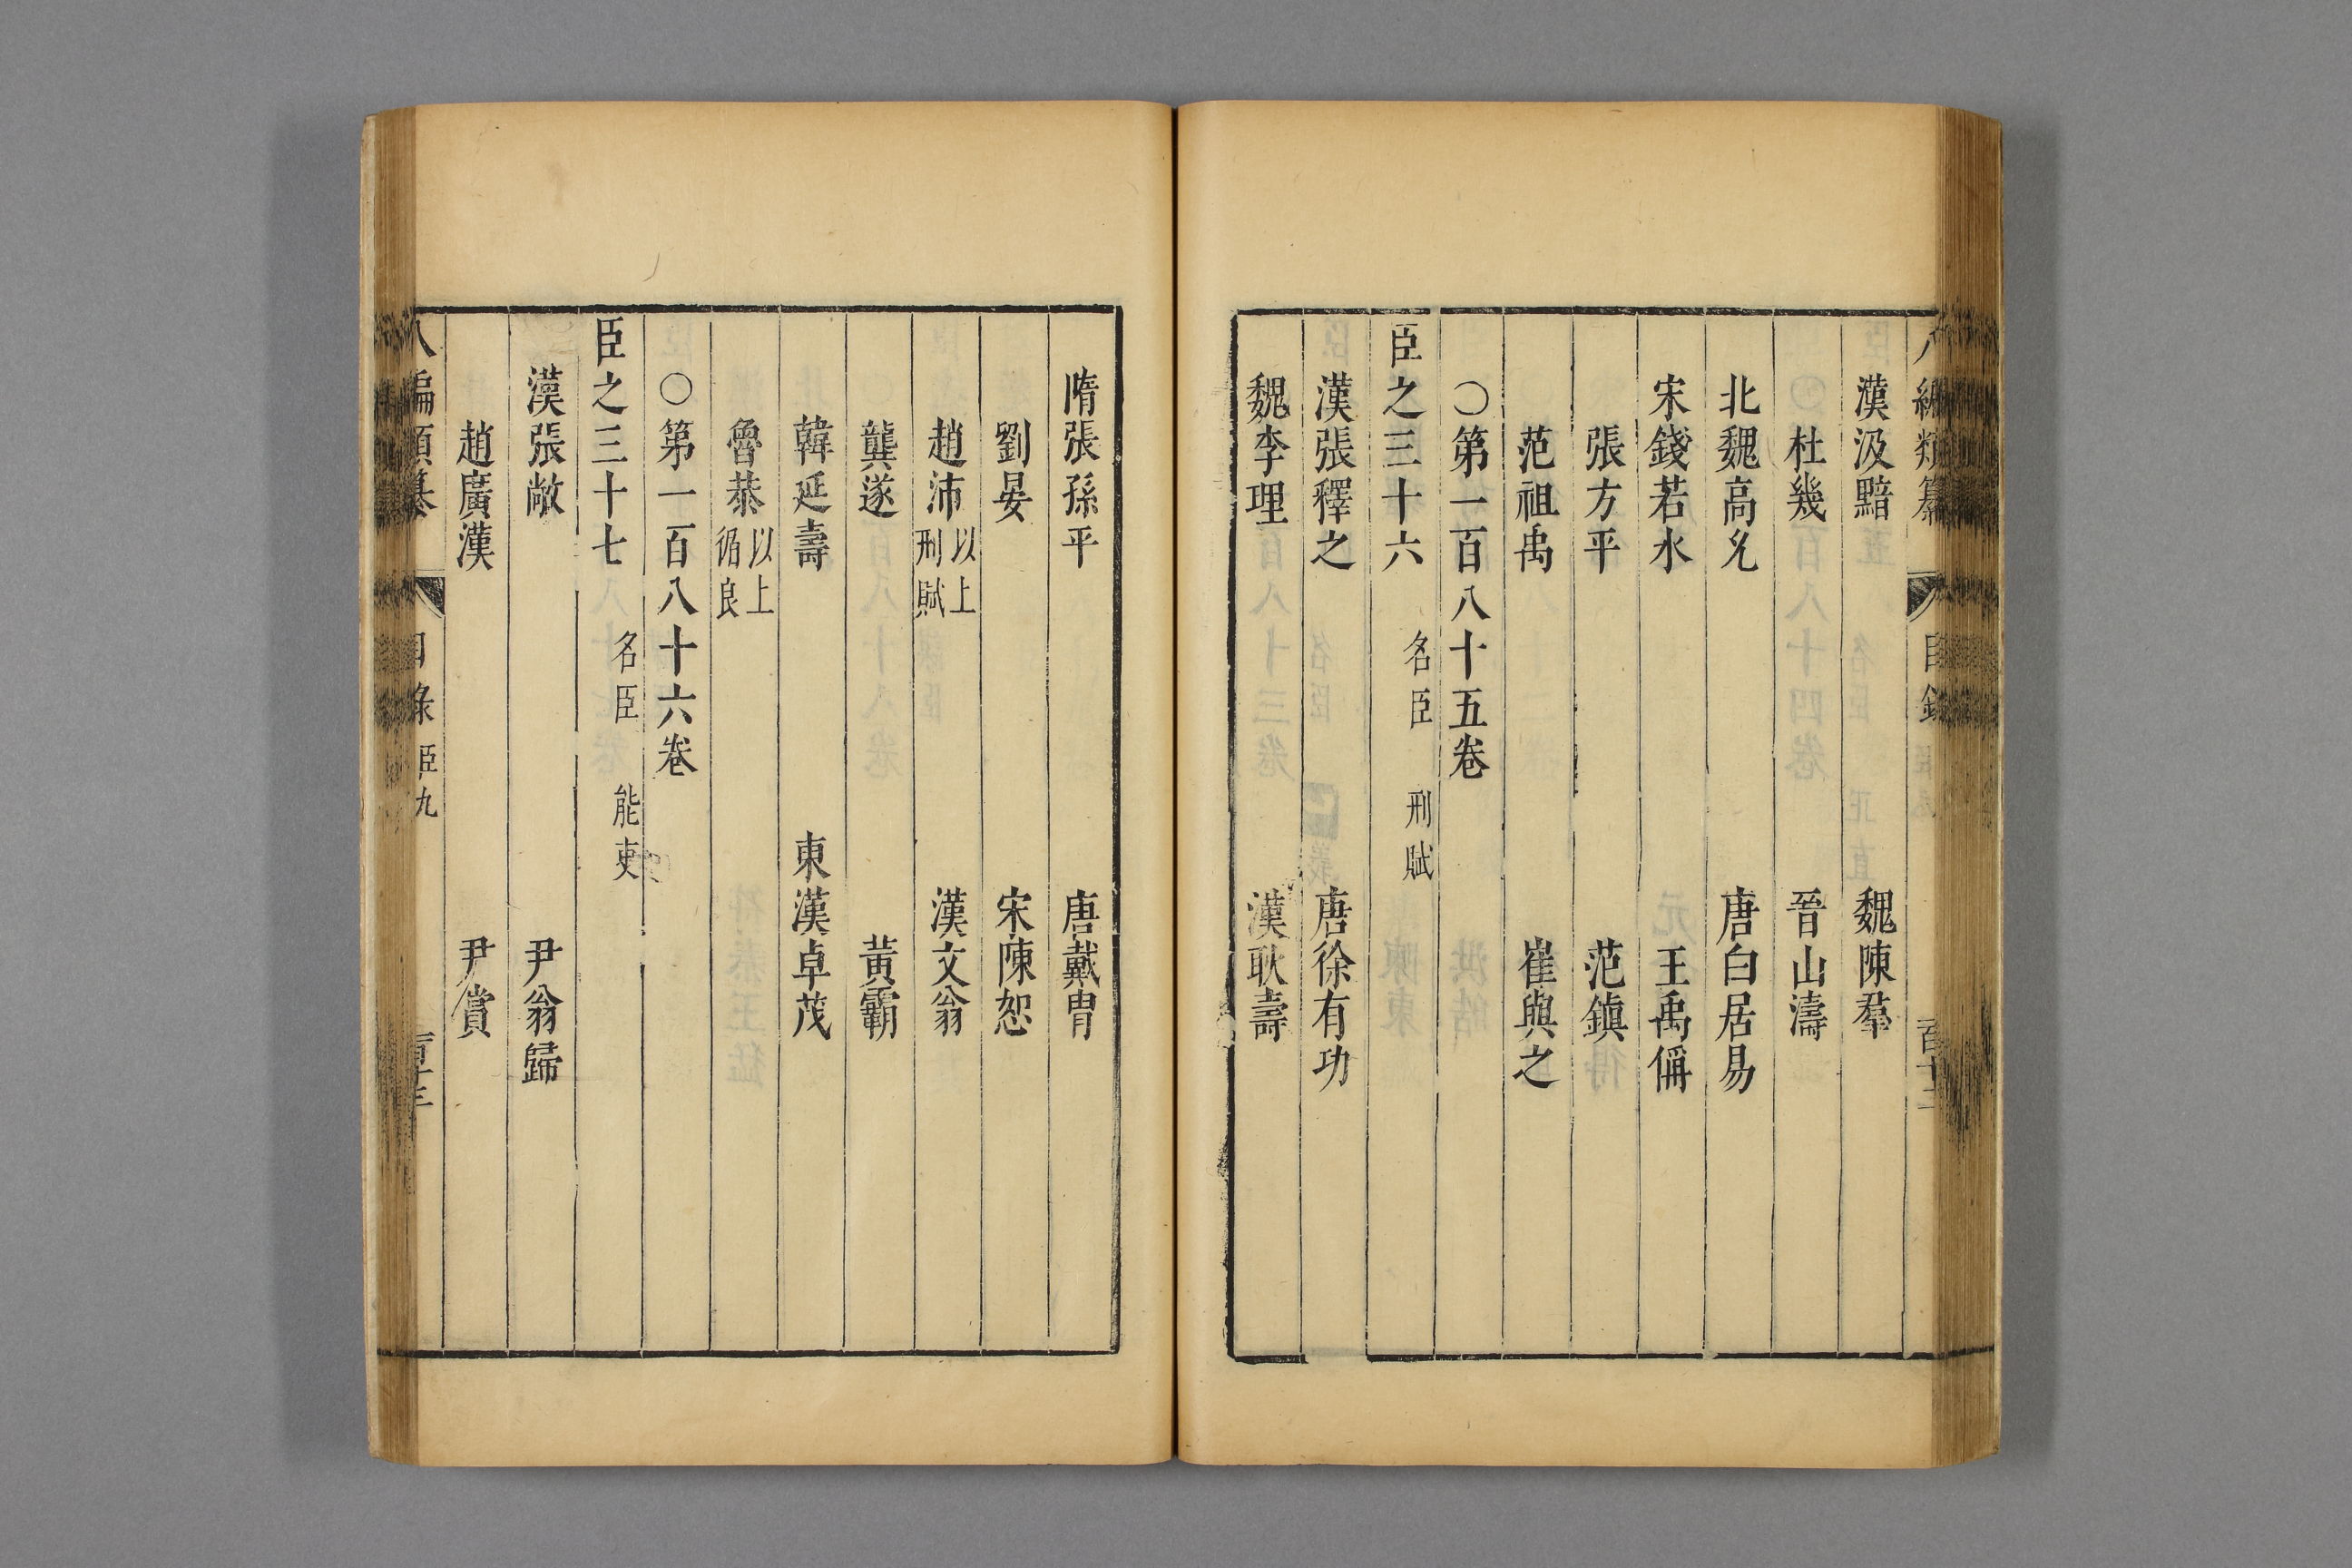 八編類纂 目錄 臣九 百十二
漢汲黯 魏陳羣
杜幾 晉山濤
北魏高允 唐白居易
宋錢若水 王禹偁
張方平 范鎮
范祖禹 崔與之
○第一百八十五卷
臣之三十六 名臣 刑賦
漢張釋之 唐徐有功
魏李理 漢耿壽
隋張孫平 唐戴冑
劉晏 宋陳恕
趙沛 以上刑賦 漢文翁
龔遂 黃霸
韓延壽 東漢卓茂
魯恭 以上循良
○第一百八十六卷
臣之三十七 名臣 能吏
漢張敞 尹翁歸
趙廣漢 尹賞
八編類纂 目錄 臣九 百十三